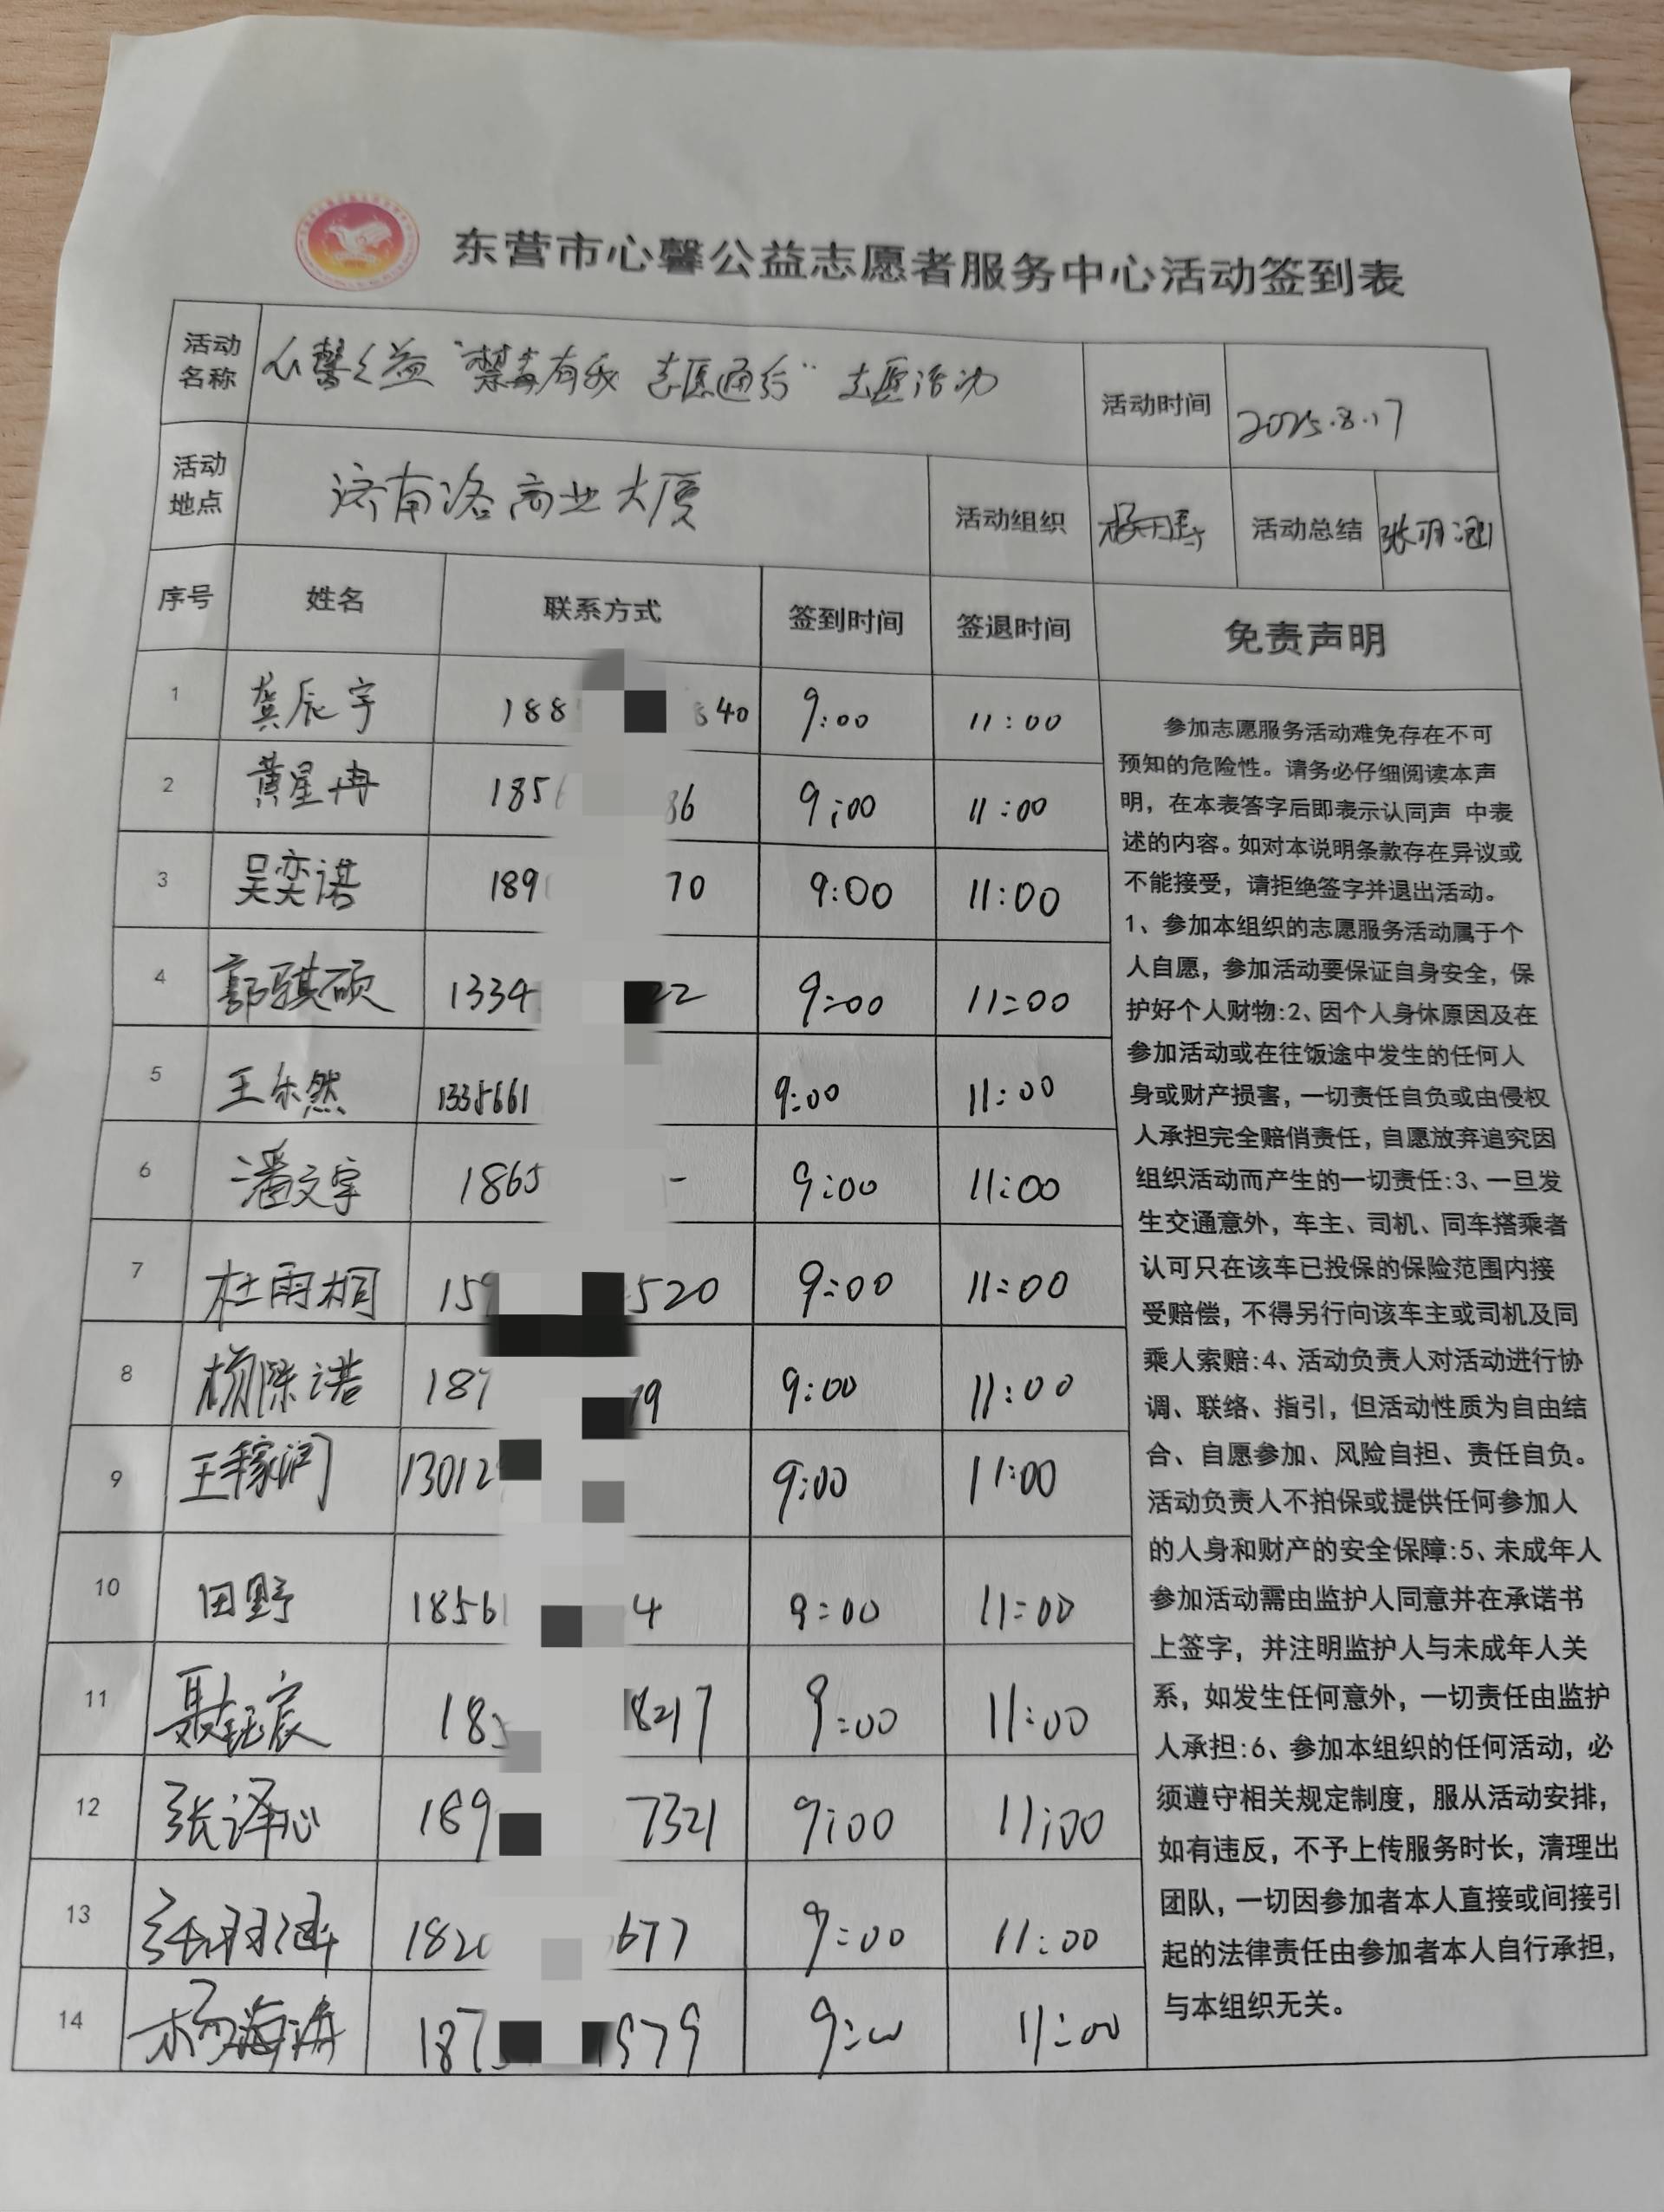 东营市心馨公益志愿者服务中心活动签到表
活动名称 心馨公益“禁毒有我 志愿通行”志愿活动 活动时间 2025.8.17
活动地点 济南洛商业大厦 活动组织 活动总结 张羽涵
序号 姓名 联系方式 签到时间 签退时间 免责声明
1 龚辰宇 188 840 9:00 11:00
2 黄星冉 185 86 9:00 11:00
3 吴奕诺 189 70 9:00 11:00
4 郭骐硕 1334 22 9:00 11:00
5 王乐然 1335661 9:00 11:00
6 潘文宇 1865 - 9:00 11:00
7 杜雨桐 159 520 9:00 11:00
8 杨陈诺 187 79 9:00 11:00
9 王稼润 13012 9:00 11:00
10 田野 18561 4 9:00 11:00
11 聂钰宸 185 8217 9:00 11:00
12 张译心 189 7321 9:00 11:00
13 张羽涵 182 677 9:00 11:00
14 杨海涛 187 979 9:00 11:00
参加志愿服务活动难免存在不可
预知的危险性。请务必仔细阅读本声
明，在本表答字后即表示认同声 中表
述的内容。如对本说明条款存在异议或
不能接受，请拒绝签字并退出活动。
1、参加本组织的志愿服务活动属于个
人自愿，参加活动要保证自身安全，保
护好个人财物:2、因个人身休原因及在
参加活动或在往饭途中发生的任何人
身或财产损害，一切责任自负或由侵权
人承担完全赔俏责任，自愿放弃追究因
组织活动而产生的一切责任:3、一旦发
生交通意外，车主、司机、同车搭乘者
认可只在该车已投保的保险范围内接
受赔偿，不得另行向该车主或司机及同
乘人索赔:4、活动负责人对活动进行协
调、联络、指引，但活动性质为自由结
合、自愿参加、风险自担、责任自负。
活动负责人不拍保或提供任何参加人
的人身和财产的安全保障:5、未成年人
参加活动需由监护人同意并在承诺书
上签字，并注明监护人与未成年人关
系，如发生任何意外，一切责任由监护
人承担:6、参加本组织的任何活动，必
须遵守相关规定制度，服从活动安排，
如有违反，不予上传服务时长，清理出
团队，一切因参加者本人直接或间接引
起的法律责任由参加者本人自行承担，
与本组织无关。